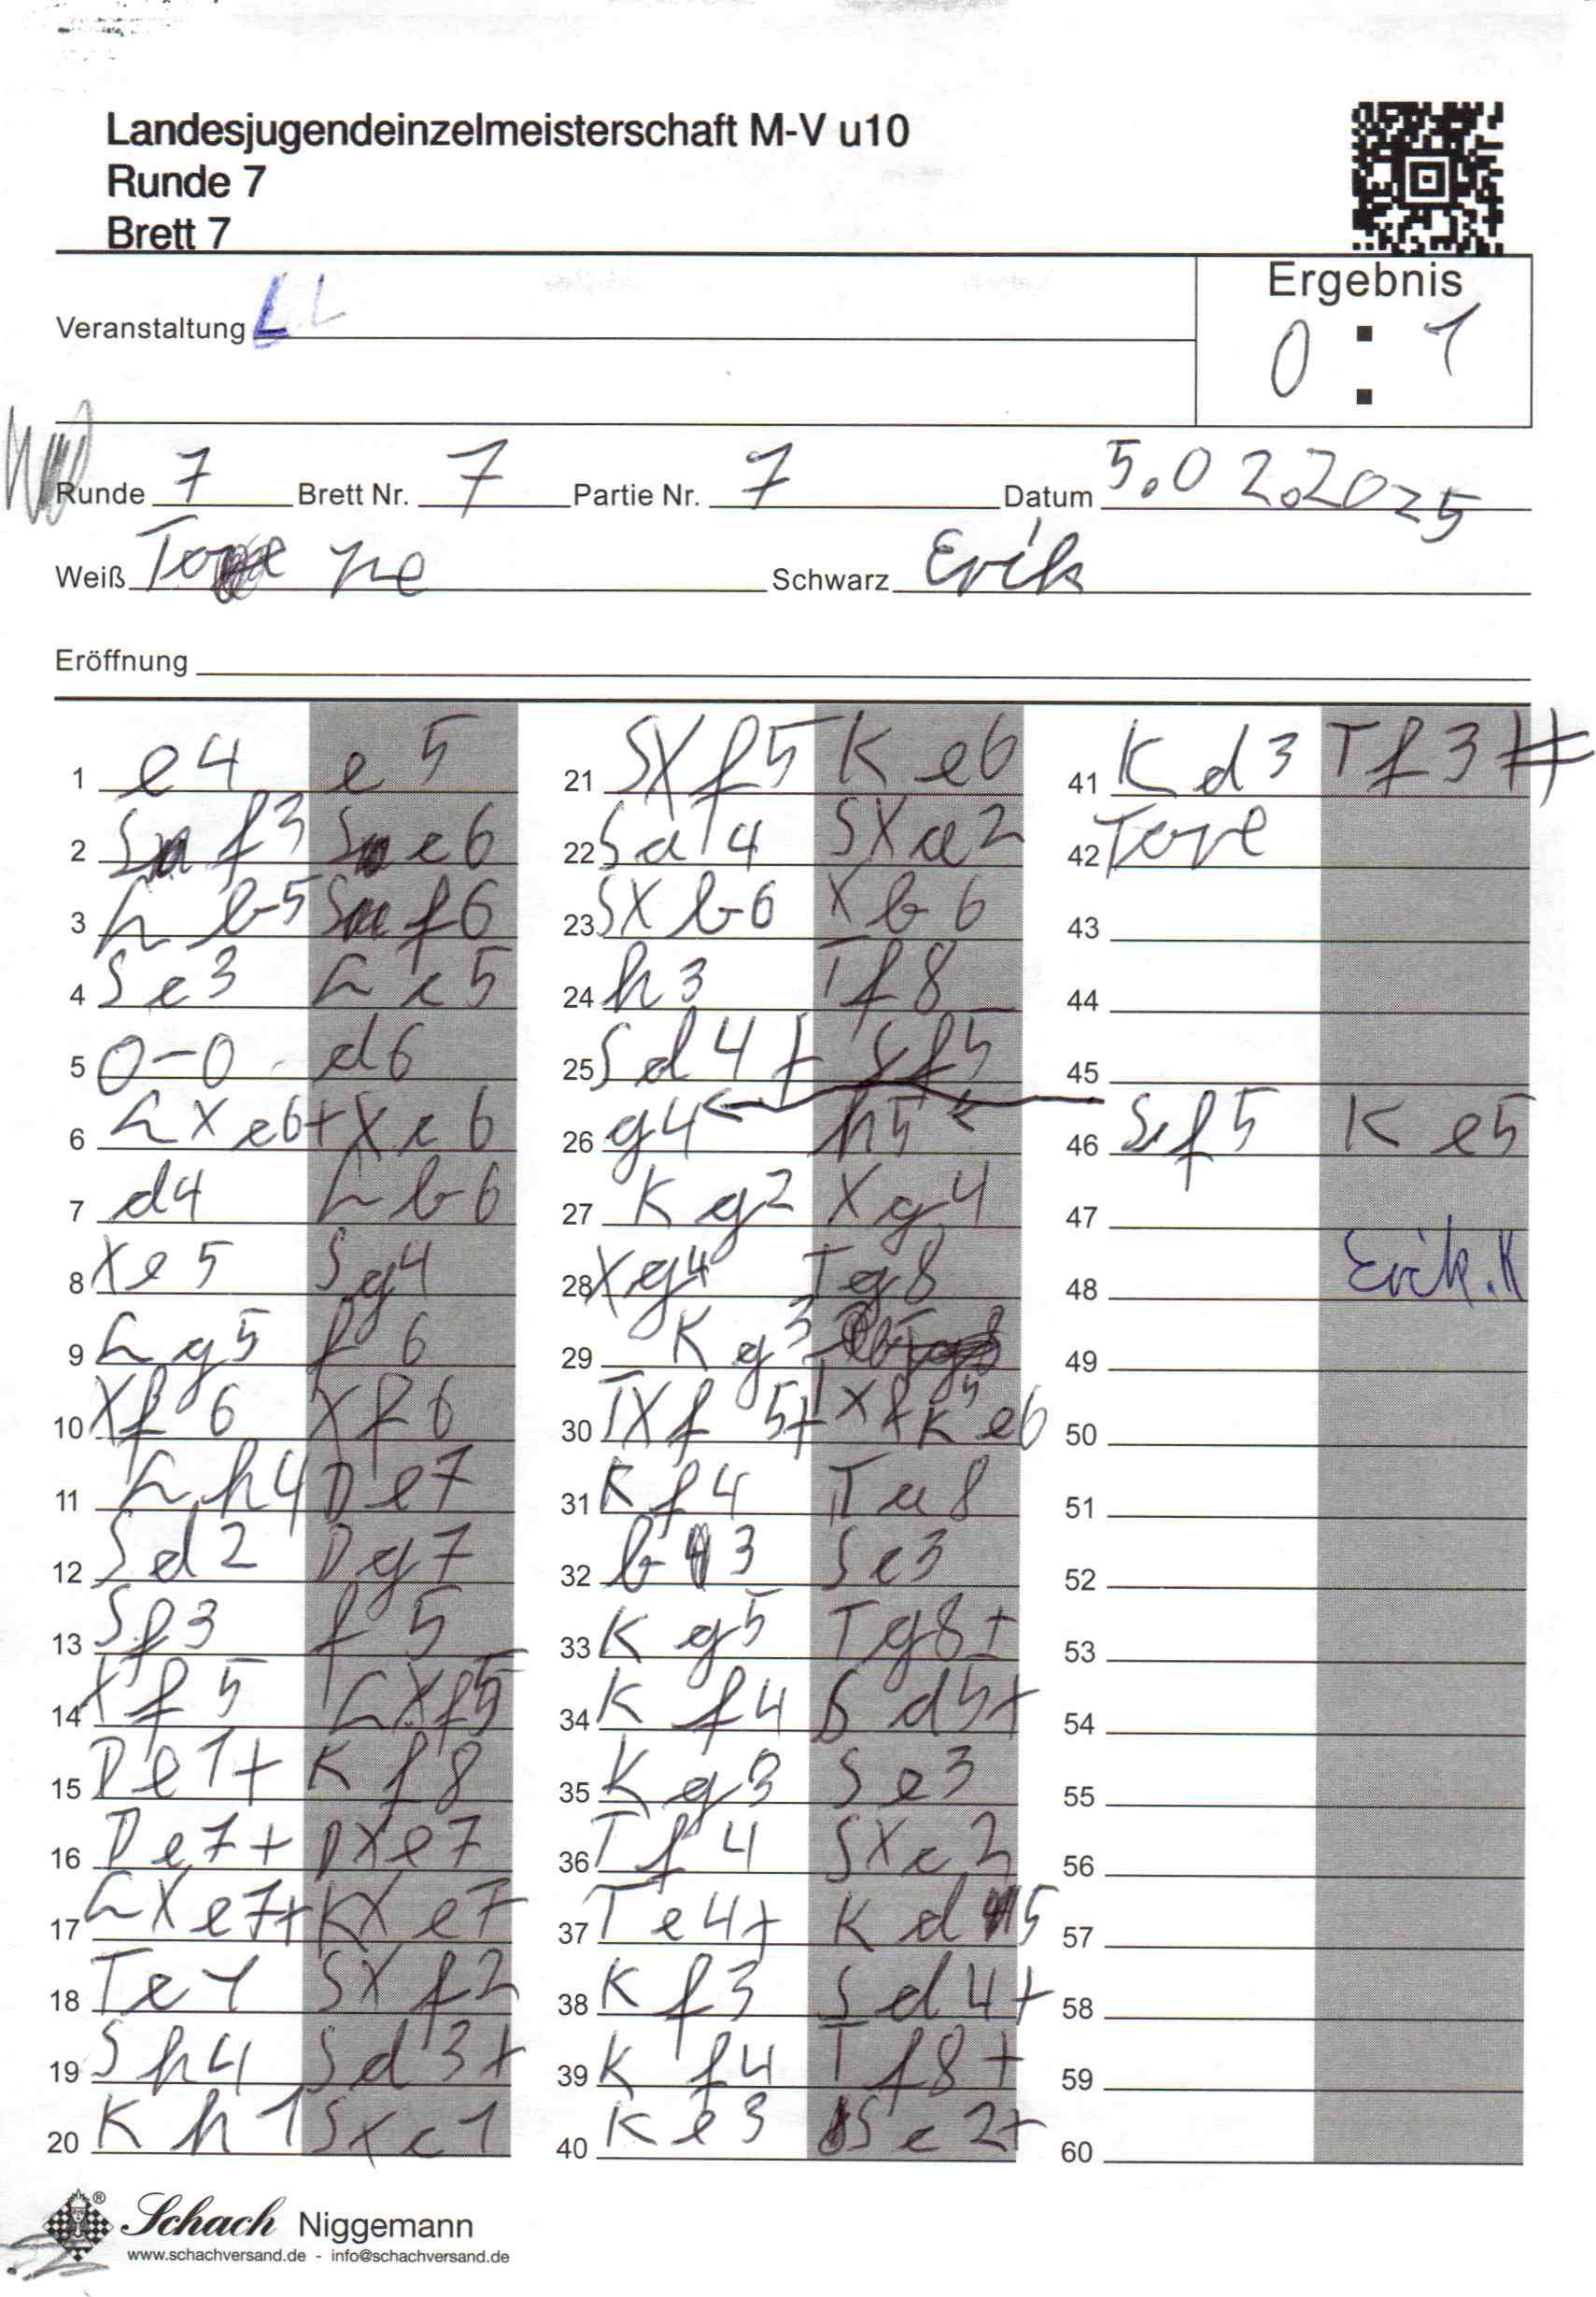 Landesjugendeinzelmeisterschaft M-V u10
Runde 7
Brett 7
Ergebnis
0 : 1
Veranstaltung LL
Runde 7 Brett Nr. 7 Partie Nr. 7 Datum 5.02.2025
Weiß Schwarz Erik
Eröffnung
1 e4 e5
2 Sf3 Sc6
3 Lb5 Sf6
4 Sc3 Lc5
5 0-0 d6
6 LXc6+ Xc6
7 d4 Lb6
8 Xe5 Sg4
9 Lg5 f6
10 Xf6 Xf6
11 Lh4 De7
12 Sd2 Dg7
13 Sf3 f5
14 Xf5 LXf5
15 De1+ Kf8
16 De7+ DXe7
17 LXe7+ KXe7
18 Te1 SXf2
19 Sh4 Sd3+
20 Kh1 Sxc1
21 SXf5 Ke6
22 Sa4 SXa2
23 SXb6 Xb6
24 h3 Tf8
25 Sd4+ Sf5
26 g4 h5
27 Kg2 Xg4
28 Xg4 Tg8
29 Kg3
30 TXf5+ Ke6
31 Kf4 Ta8
32 b3 Sc3
33 Kg5 Tg8+
34 Kf4 Sd5+
35 Kg3 Se3
36 Tf4 SXc2
37 Te4+ Kd5
38 Kf3 Sd4+
39 Kf4 Tf8+
40 Ke3 Sc2+
41 Kd3 Tf3#
42 Tore
43
44
45
46 Sf5 Ke5
47
48 Erik.K
49
50
51
52
53
54
55
56
57
58
59
60
Schach Niggemann
www.schachversand.de - info@schachversand.de